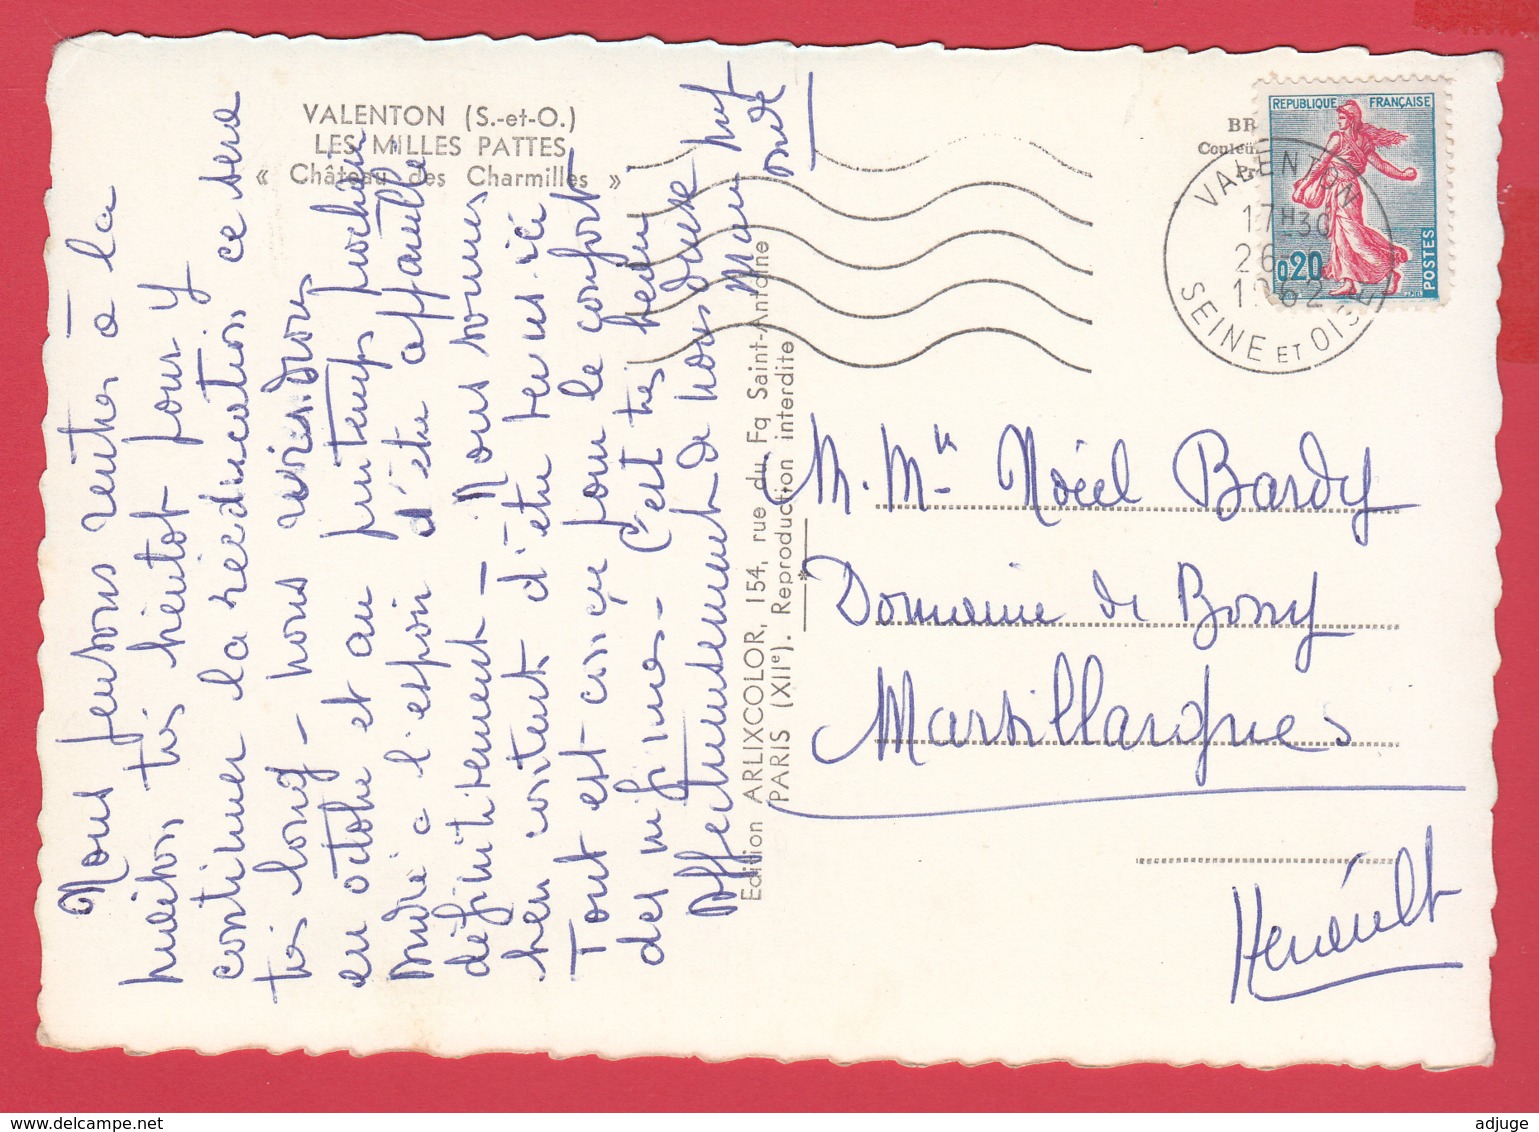 VALENTON (S.-et-O.)
LES MILLES PATTES
« Château des Charmilles »
Nous pensons rentrer à la
maison très bientôt pour y
continuer la rééducation. ce sera
très long - nous reviendrons
en octobre et au printemps prochain
André a l'espoir d'être appareillé
définitivement - Nous sommes
bien contents d'être venus ici
Tout est conçu pour le confort
des infirmes - C'est très beau
Affectueusement de nous deux
André
Edition ARLIXCOLOR, 154, rue du Fg Saint-Antoine
PARIS (XIIe). Reproduction interdite
BR
Couleu
REPUBLIQUE FRANÇAISE
0,20
POSTES
VALENTON
17H30
26
1962
SEINE ET OISE
M. Mme Noël Bardy
Domaine de Bony
Marsillargues
Hérault
adjuge